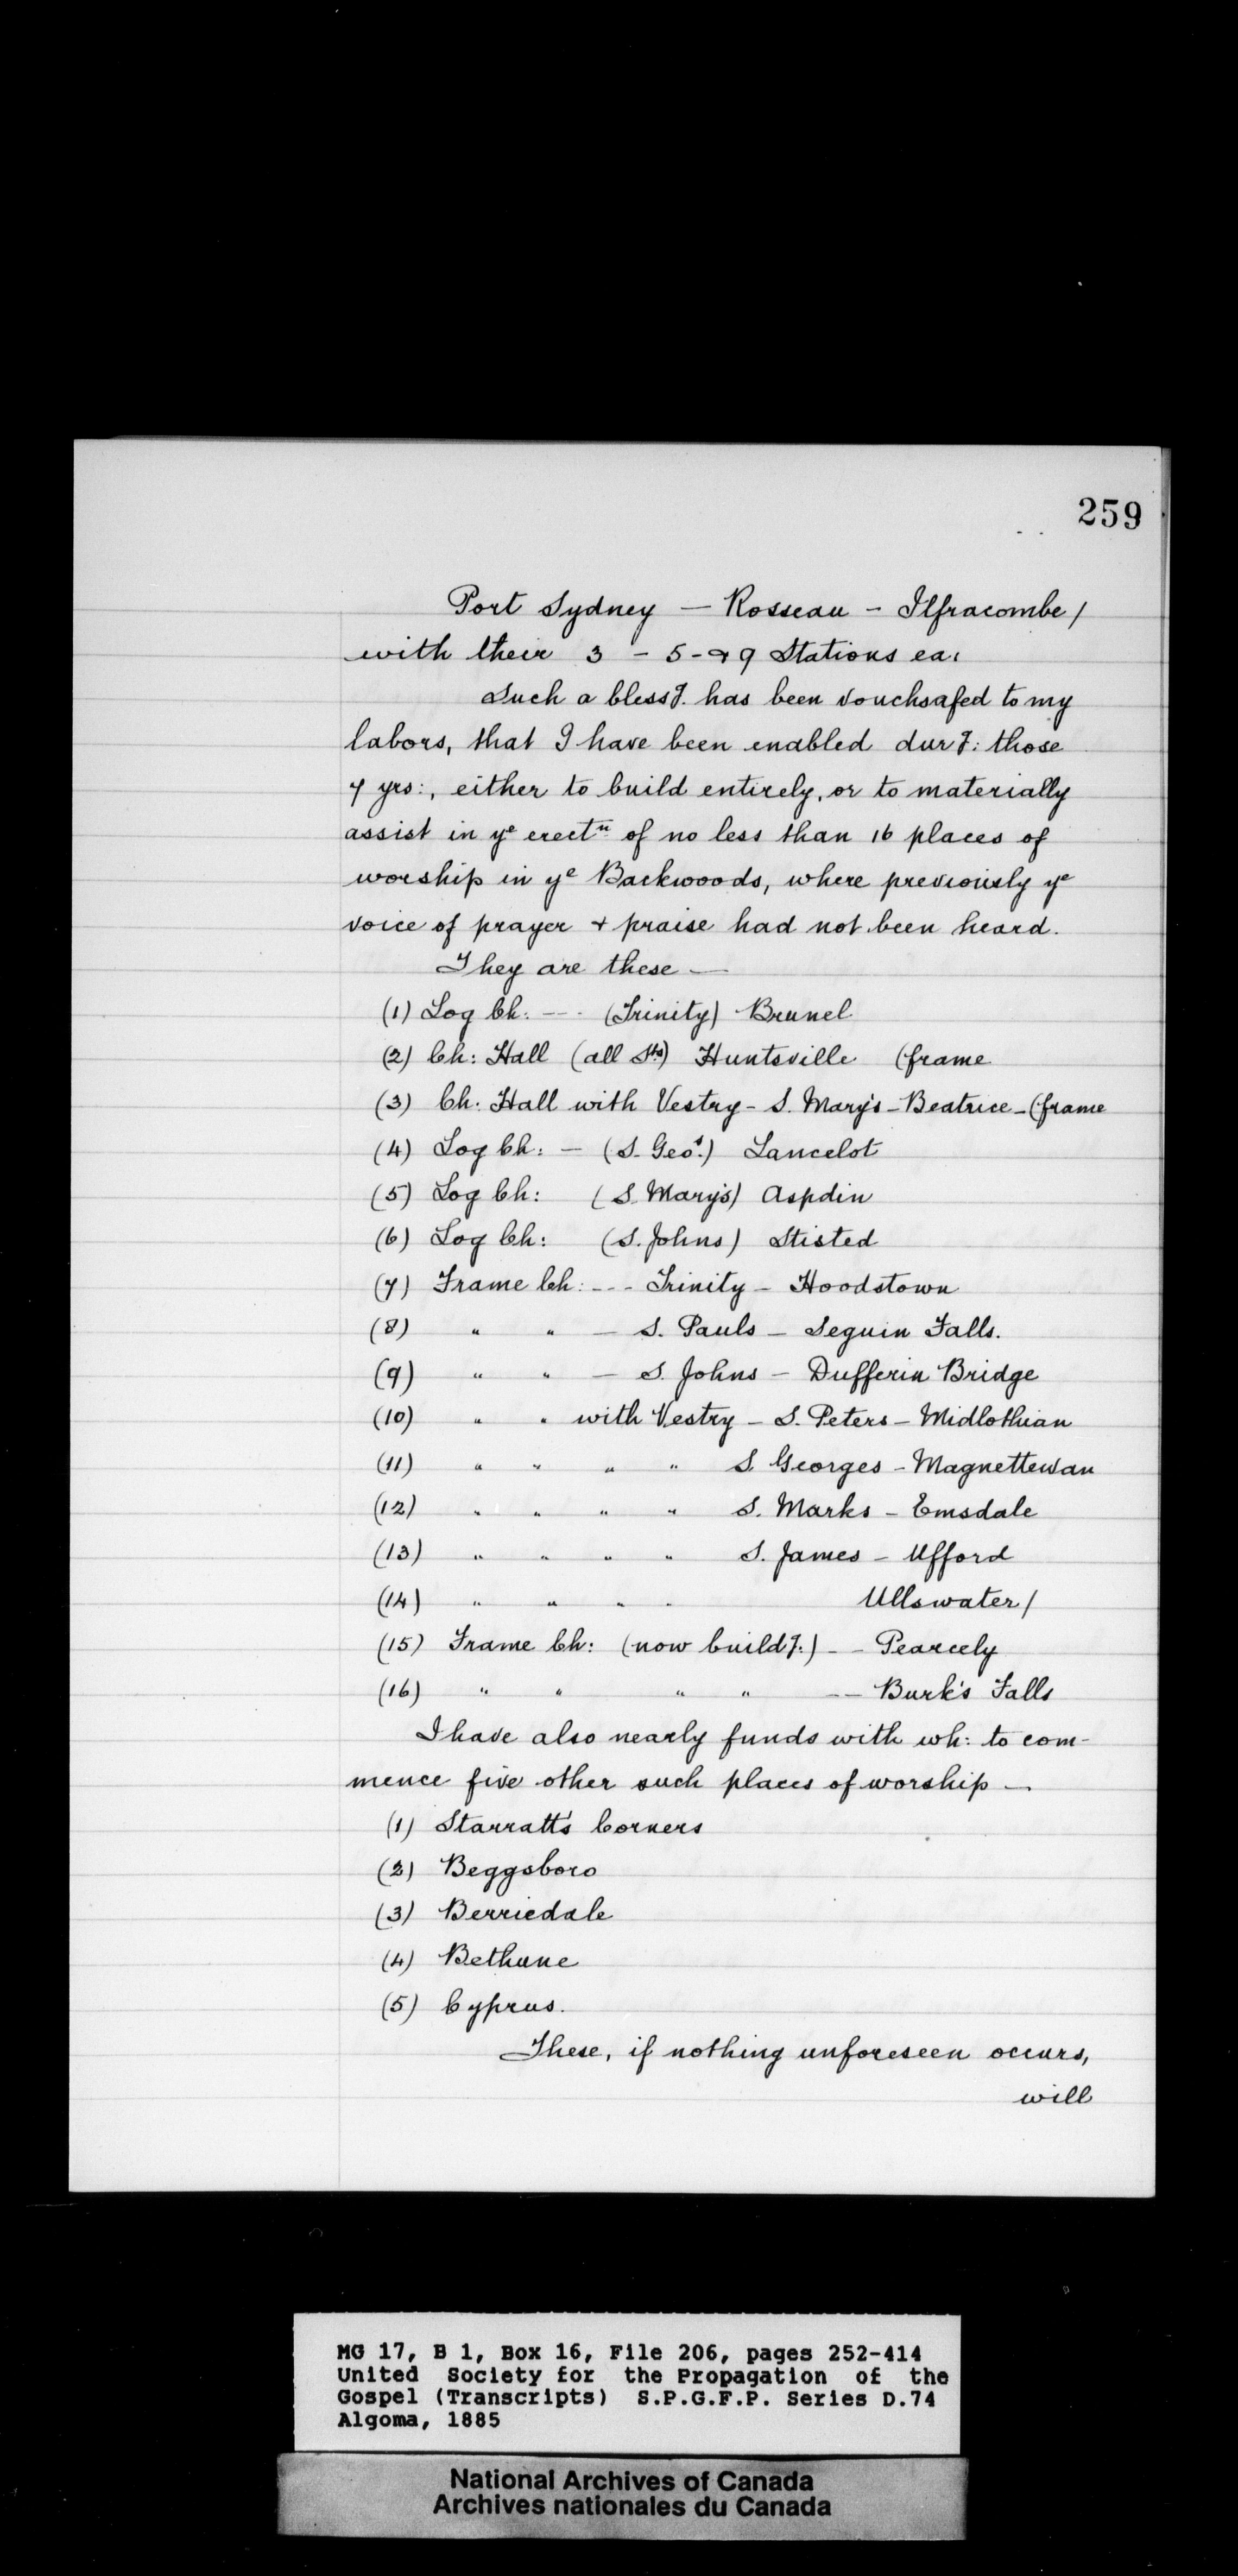 259
Port Sydney — Rosseau – Ilfracombe /
with their 3 – 5 – & 9 Stations ea:
Such a blessg. has been vouchsafed to my
labors, that I have been enabled durg: those
7 yrs:, either to build entirely, or to materially
assist in ye erectn of no less than 16 places of
worship in ye Backwoods, where previously ye
voice of prayer + praise had not been heard.
They are these —
(1) Log Ch: --- (Trinity) Brunel
(2) Ch: Hall (all Sts) Huntsville (frame
(3) Ch: Hall with Vestry – S. Mary's – Beatrice – (frame
(4) Log Ch: – (S. Geo's.) Lancelot
(5) Log Ch: (S. Mary's) Aspdin
(6) Log Ch: (S. Johns) Stisted
(7) Frame Ch: --- Trinity – Hoodstown
(8) " " — S. Pauls – Seguin Falls.
(9) " " — S. Johns – Dufferin Bridge
(10) " " with Vestry – S. Peters – Midlothian
(11) " " " " S. Georges – Magnettewan
(12) " " " " S. Marks – Emsdale
(13) " " " " S. James – Ufford
(14) " " " " Ullswater /
(15) Frame Ch: (now buildg:) -- Pearcely
(16) " " " " -- Burk's Falls
I have also nearly funds with wh: to com-
mence five other such places of worship —
(1) Starratt's Corners
(2) Beggsboro
(3) Berriedale
(4) Bethune
(5) Cyprus.
These, if nothing unforeseen occurs,
will
MG 17, B 1, Box 16, File 206, pages 252-414
United Society for the Propagation of the
Gospel (Transcripts) S.P.G.F.P. Series D.74
Algoma, 1885
National Archives of Canada
Archives nationales du Canada